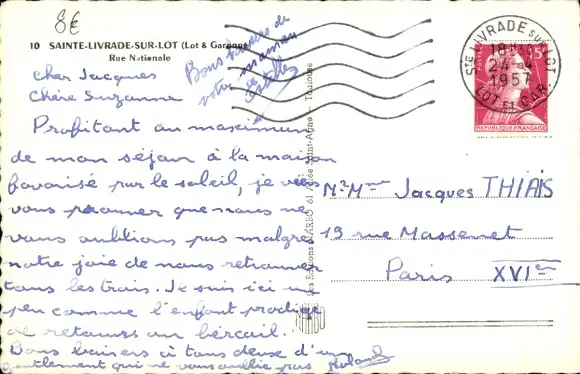 8€
10 SAINTE-LIVRADE-SUR-LOT (Lot & Garonne)
Rue Nationale
Bons baisers de
votre maman
Cher Jacques
Chère Suzanne
Profitant au maximum
de mon séjour à la maison
favorisé par le soleil, je viens
vous prouver que nous ne
vous oublions pas malgré
notre joie de nous retrouver
tous les trois. Je suis ici un
peu comme l'enfant prodige
de retour au bercail.
Bons baisers à tous deux d'un
gentlement qui ne vous oublie pas Roland
STE LIVRADE SUR LOT
18H
24-4
1957
LOT ET GAR.
POSTES
15F
REPUBLIQUE FRANÇAISE
Mr Mme Jacques THIAIS
19 rue Massenet
Paris XVIe